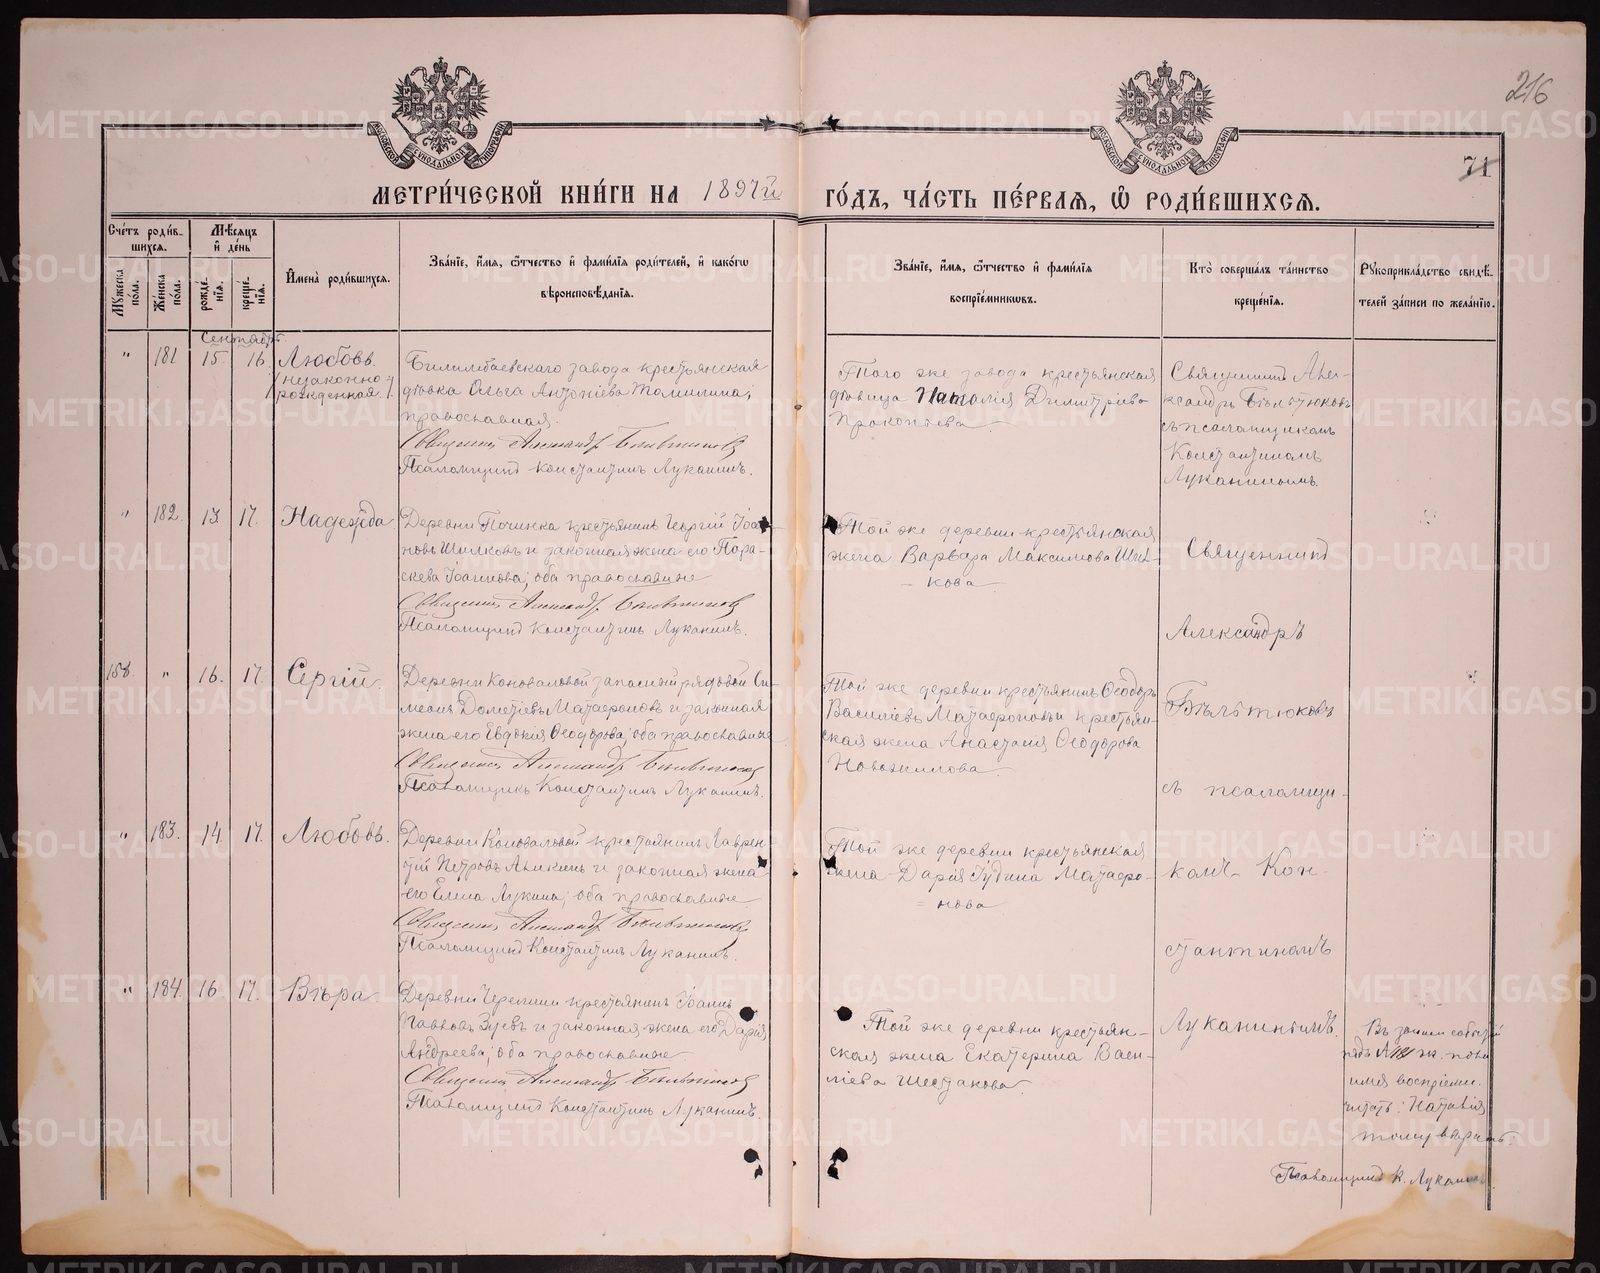 216
71
МОСКОВСКОЙ СУНОДАЛЬНОЙ ТИПОГРАФІИ
МОСКОВСКОЙ СУНОДАЛЬНОЙ ТИПОГРАФІИ
МЕТРИ́ЧЕСКОЙ КНИ́ГИ НА 1897й ГО́ДЪ, ЧА́СТЬ ПЕ́РВАѦ, Ѽ РОДИ́ВШИХСѦ.
Сче́тъ роди́в-
шихся.
Мѣ́сяцъ
и҆ де́нь
Мꙋ́жеска по́ла.
Же́нска по́ла.
рожде́-
нїя.
креще́-
нїя.
И҆мена̀ роди́вшихся.
Зва́нїе, и҆́мя, ѻ҆́тчество и҆ фами́лїя роди́телей, и҆ како́гѡ
вѣроисповѣ́данїя.
Зва́нїе, и҆́мя, ѻ҆́тчество и҆ фами́лїя
воспрїе́мникѡвъ.
Кто̀ соверша́лъ та́инство
креще́нїя.
Рꙋкоприкла́дство свидѣ́-
телей за́писи по жела́нїю.
Сентябрь
" 181 15. 16. Любовь
/незаконно-
рожденная/.
Билимбаевскаго завода крестьянская
дѣвка Ольга Антоніева Томилина;
православная.
Священникъ Александръ Бѣльтюковъ
Псаломщикъ Константинъ Луканинъ.
Того же завода крестьянская
дѣвица Наталія Димитріева
Прокопьева.
Священникъ Алек-
сандръ Бѣльтюковъ
съ псаломщикомъ
Константиномъ
Луканинымъ.
" 182. 13. 17. Надежда
Деревни Починка крестьянинъ Георгій Іоан-
новъ Шилковъ и законная жена его Пара-
скева Іоаннова; оба православные
Священникъ Александръ Бѣльтюковъ
Псаломщикъ Константинъ Луканинъ.
Той же деревни крестьянская
жена Варвара Максимова Шил-
кова
Священникъ
Александръ
158. " 16. 17. Сергій.
Деревни Коноваловой запасный рядовой Си-
меонъ Дометіевъ Матаеровъ и законная
жена его Евдокія Ѳеодорова; оба православные
Священникъ Александръ Бѣльтюковъ
Псаломщикъ Константинъ Луканинъ.
Той же деревни крестьянинъ Ѳеодоръ
Василіевъ и крестьян-
ская жена Анастасія Ѳеодорова
Бѣльтюковъ
съ псаломщи-
" 183. 14. 17. Любовь.
Деревни Коноваловой крестьянинъ Лаврен-
тій Петровъ и законная жена
его Елена Лукина; оба православные
Священникъ Александръ Бѣльтюковъ
Псаломщикъ Константинъ Луканинъ.
Той же деревни крестьянская
жена Дарія Іудина
нова
комъ Кон-
стантиномъ
" 184. 16. 17. Вѣра.
Деревни Черемши крестьянинъ Іоаннъ
Павловъ Зуевъ и законная жена его Дарія
Андреева; оба православные
Священникъ Александръ Бѣльтюковъ
Псаломщикъ Константинъ Луканинъ.
Той же деревни крестьян-
ская жена Екатерина Васи-
ліева Шестакова
Луканинымъ.
Въ записи событія
подъ № 181
имя воспріемн.
читать: Наталія
тому вѣрить.
Псаломщикъ К. Луканинъ.
METRIKI.GASO-URAL.RU